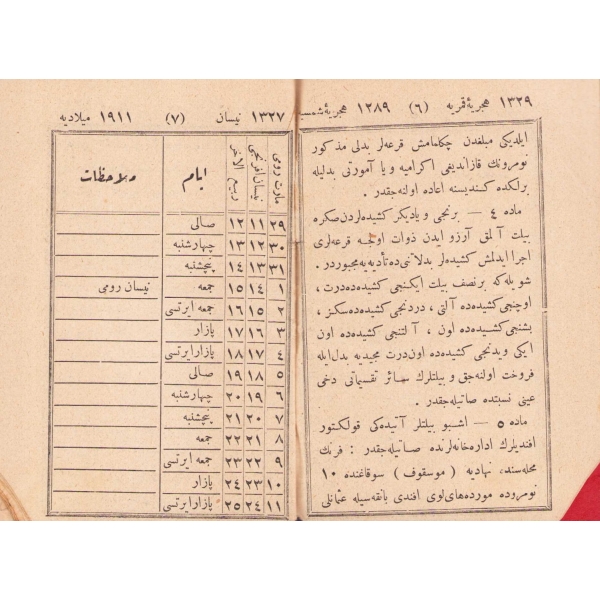 ١٣٢٩ هجریۀ قمریه (٦) ١٢٨٩ هجریۀ شمسیه
ایلدیکی مبلغدن چکلمامش قرعه‌لر بدلی مذکور
نومرونك قازاندیغی اکرامیه و یا آمورتی بدلیله
برلکده کندیسنه اعاده اولنه‌جقدر.
ماده ٤ — برنجی و یادیکر کشیده‌لردن صکره
بیلت آلمق آرزو ایدن ذوات اولجه قرعه‌لری
اجرا ایدلمش کشیده‌لر بدلاتنی‌ده تأدیه‌یه مجبوردر.
شویله‌که برنصف بیلت ایکنجی کشیده‌ده درت،
اوچنجی کشیده‌ده آلتی، دردنجی کشیده‌ده سکز،
بشنجی کشیده‌ده اون، آلتنجی کشیده‌ده اون
ایکی ویدنجی کشیده‌ده اون درت مجیدیه بدل ایله
فروخت اولنه‌جق و بیلتلرك سائر تقسیماتی دخی
عینی نسبتده صاتیله‌جقدر.
ماده ٥ — اشبو بیلتلر آتیده‌کی قولکتور
افندیلرك اداره‌خانه‌لرنده صاتیله‌جقدر: فرنك
محله‌سند، نهادیه (موسقوف) سوقاغنده ١٠
نومروده مورده‌های لوی افندی بانقه‌سیله عثمانلی
١٣٢٧ نیسان (٧) ١٩١١ میلادیه
مارت رومی نیسان افرنجی ربیع الاخر ایام ملاحظات
٢٩ ١١ ١٢ صالی
٣٠ ١٢ ١٣ چهارشنبه
٣١ ١٣ ١٤ پنچشنبه
١ ١٤ ١٥ جمعه نیسان رومی
٢ ١٥ ١٦ جمعه ایرتسی
٣ ١٦ ١٧ پازار
٤ ١٧ ١٨ پازار ایرتسی
٥ ١٨ ١٩ صالی
٦ ١٩ ٢٠ چهارشنبه
٧ ٢٠ ٢١ پنچشنبه
٨ ٢١ ٢٢ جمعه
٩ ٢٢ ٢٣ جمعه ایرتسی
١٠ ٢٣ ٢٤ پازار
١١ ٢٤ ٢٥ پازار ایرتسی